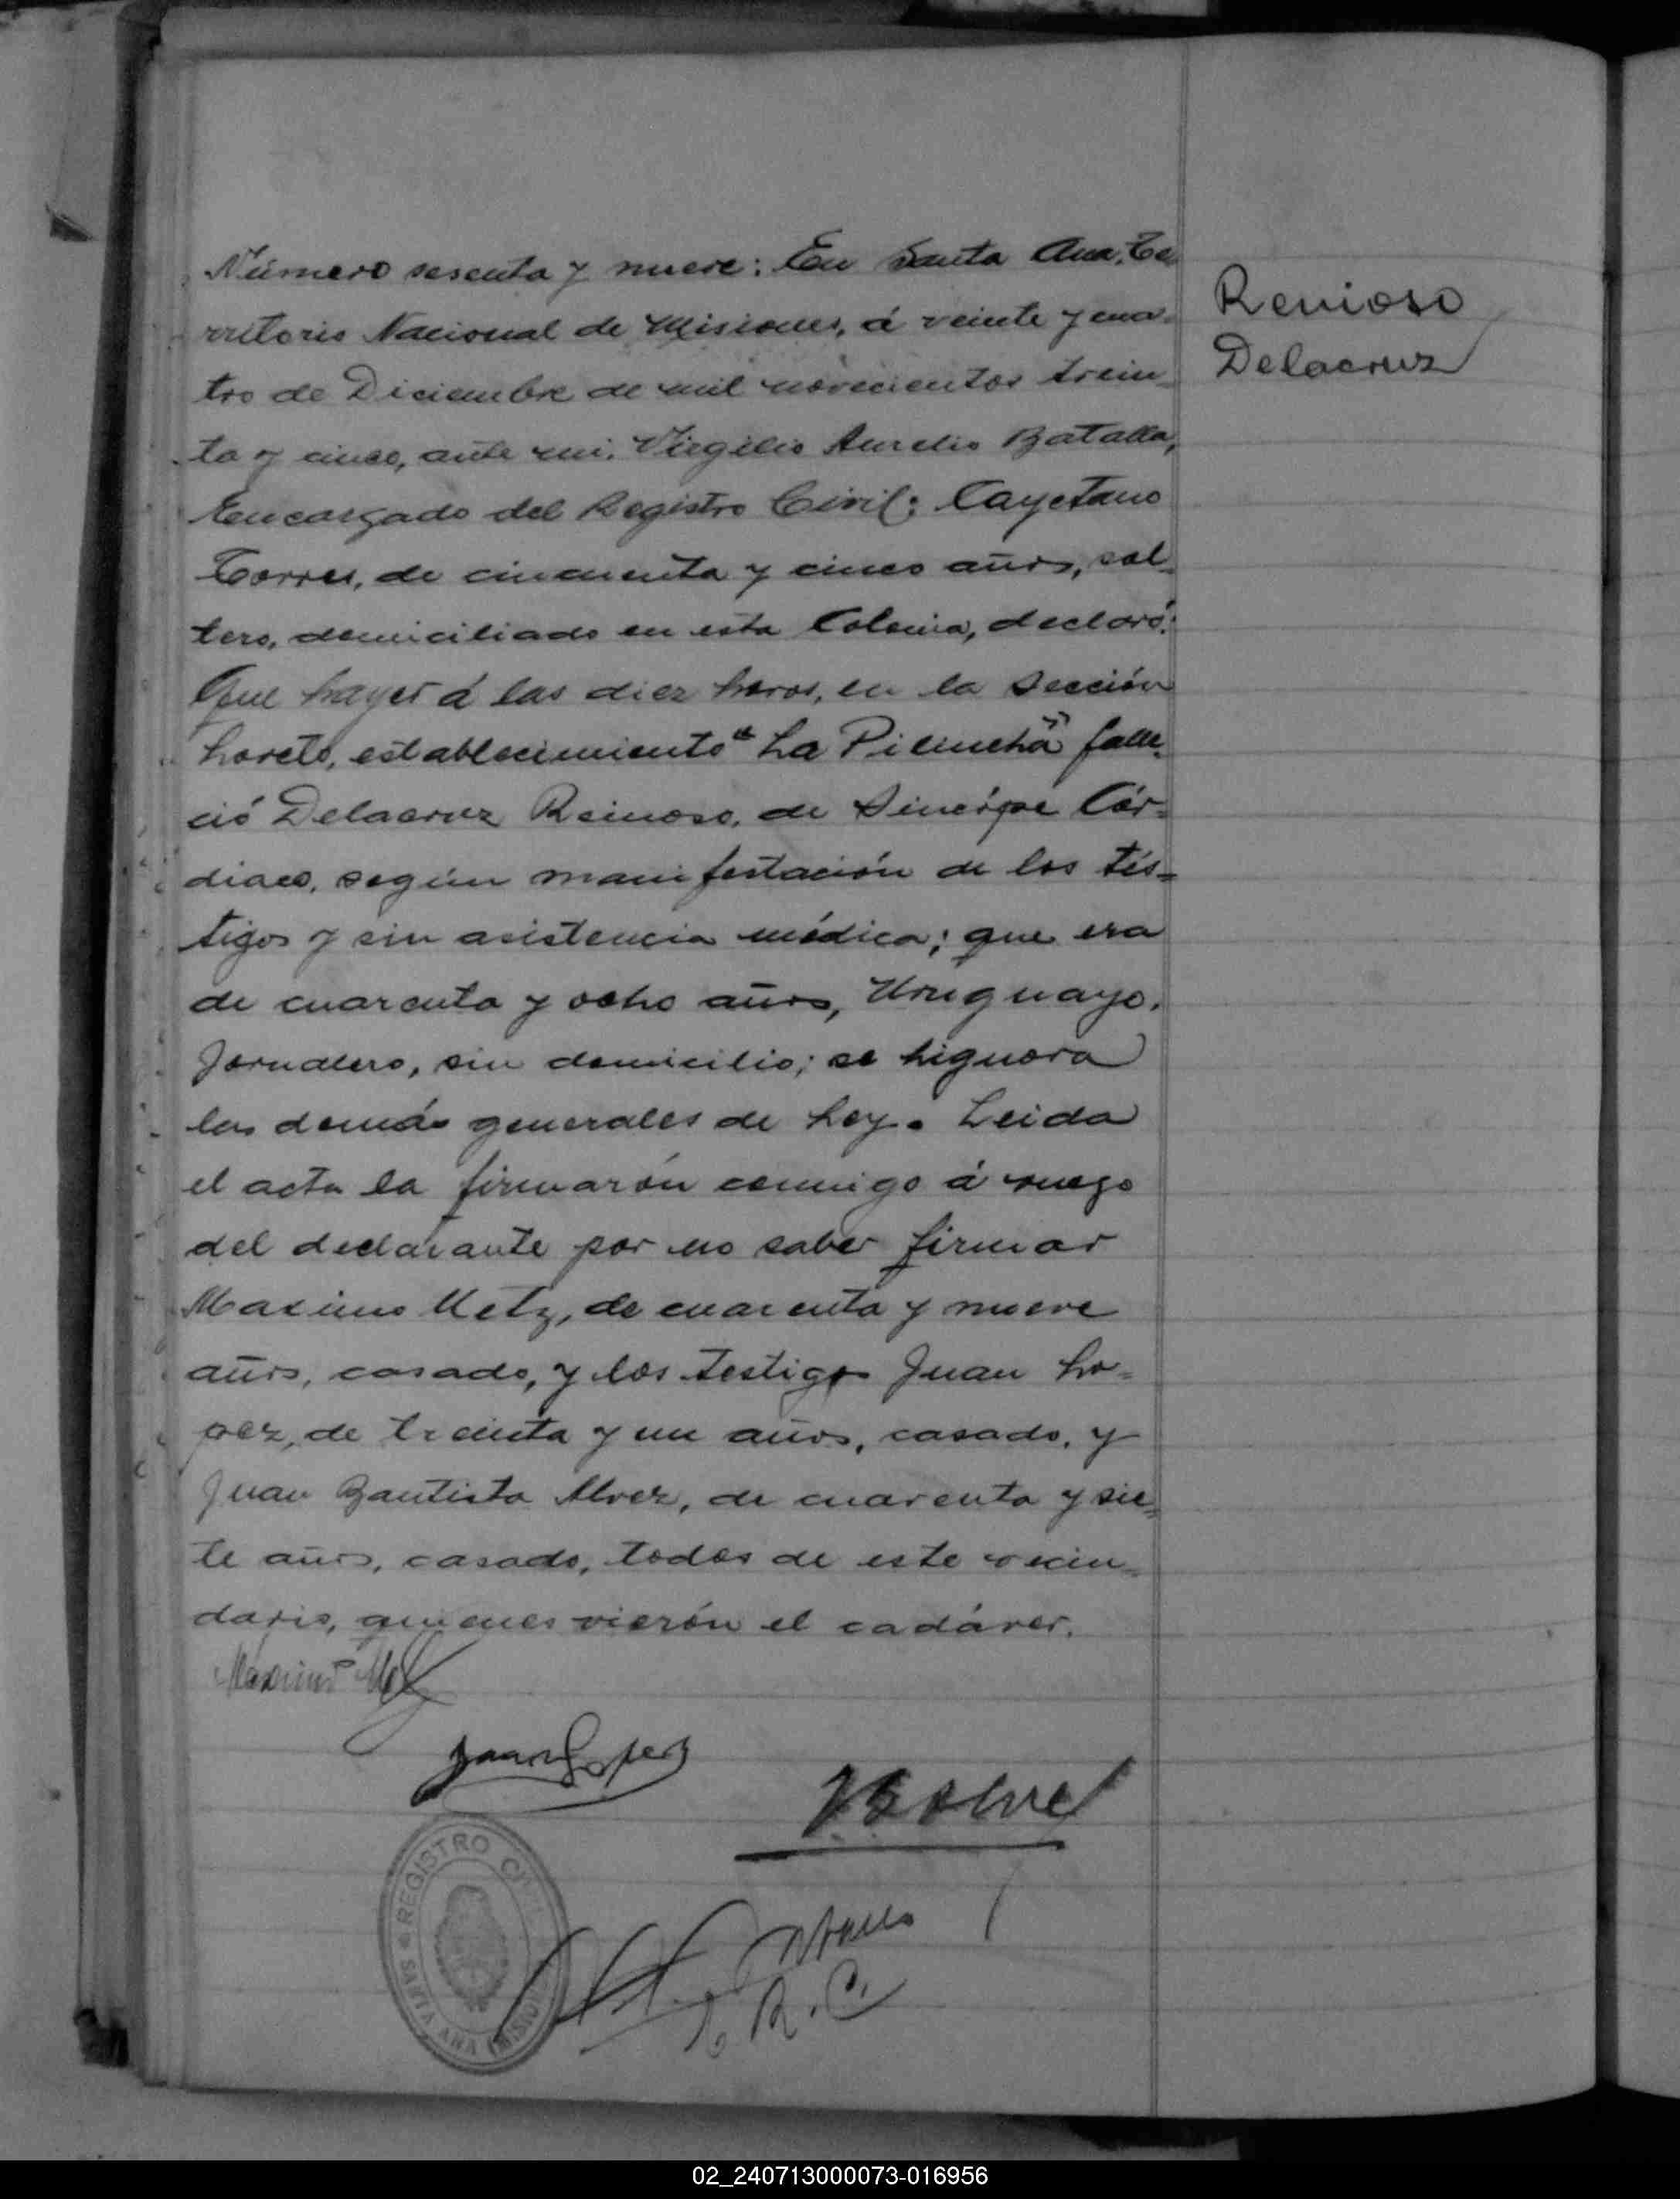 Número sesenta y nueve: En Santa Ana, Te
rritorio Nacional de Misiones, á veinte y cua-
tro de Diciembre de mil novecientos trein-
ta y cinco, ante mi, Virgilio Aurelio Batalla,
Encargado del Registro Civil: Cayetano
Torres, de cincuenta y cinco años, sol-
tero, domiciliado en esta Colonia, declaró:
Que hayer á las diez horas, en la Sección
Loreto, establecimiento "La Pilincha" falle-
ció Delacruz Reinoso, de Sincópe Cár-
diaco, según manifestación de los tés-
tigos y sin asistencia médica; que era
de cuarenta y ocho años, Uruguayo,
Jornalero, sin domicilio; se hignora
las demás generales de Ley. Leida
el acta la firmarón conmigo á ruego
del declarante por no saber firmar
Maximo Metz, de cuarenta y nueve
años, casado, y los testigos Juan Lo-
pez, de treinta y un años, casado, y
Juan Bautista Alvez, de cuarenta y sie-
te años, casado, todos de este vecin-
dario, quienes vierón el cadáver.
Máximo Metz
Juan Lopez
JBAlvez
E. R. C.
REGISTRO CIVIL
SANTA ANA (MISIONES)
Renioso
Delacruz
02_240713000073-016956